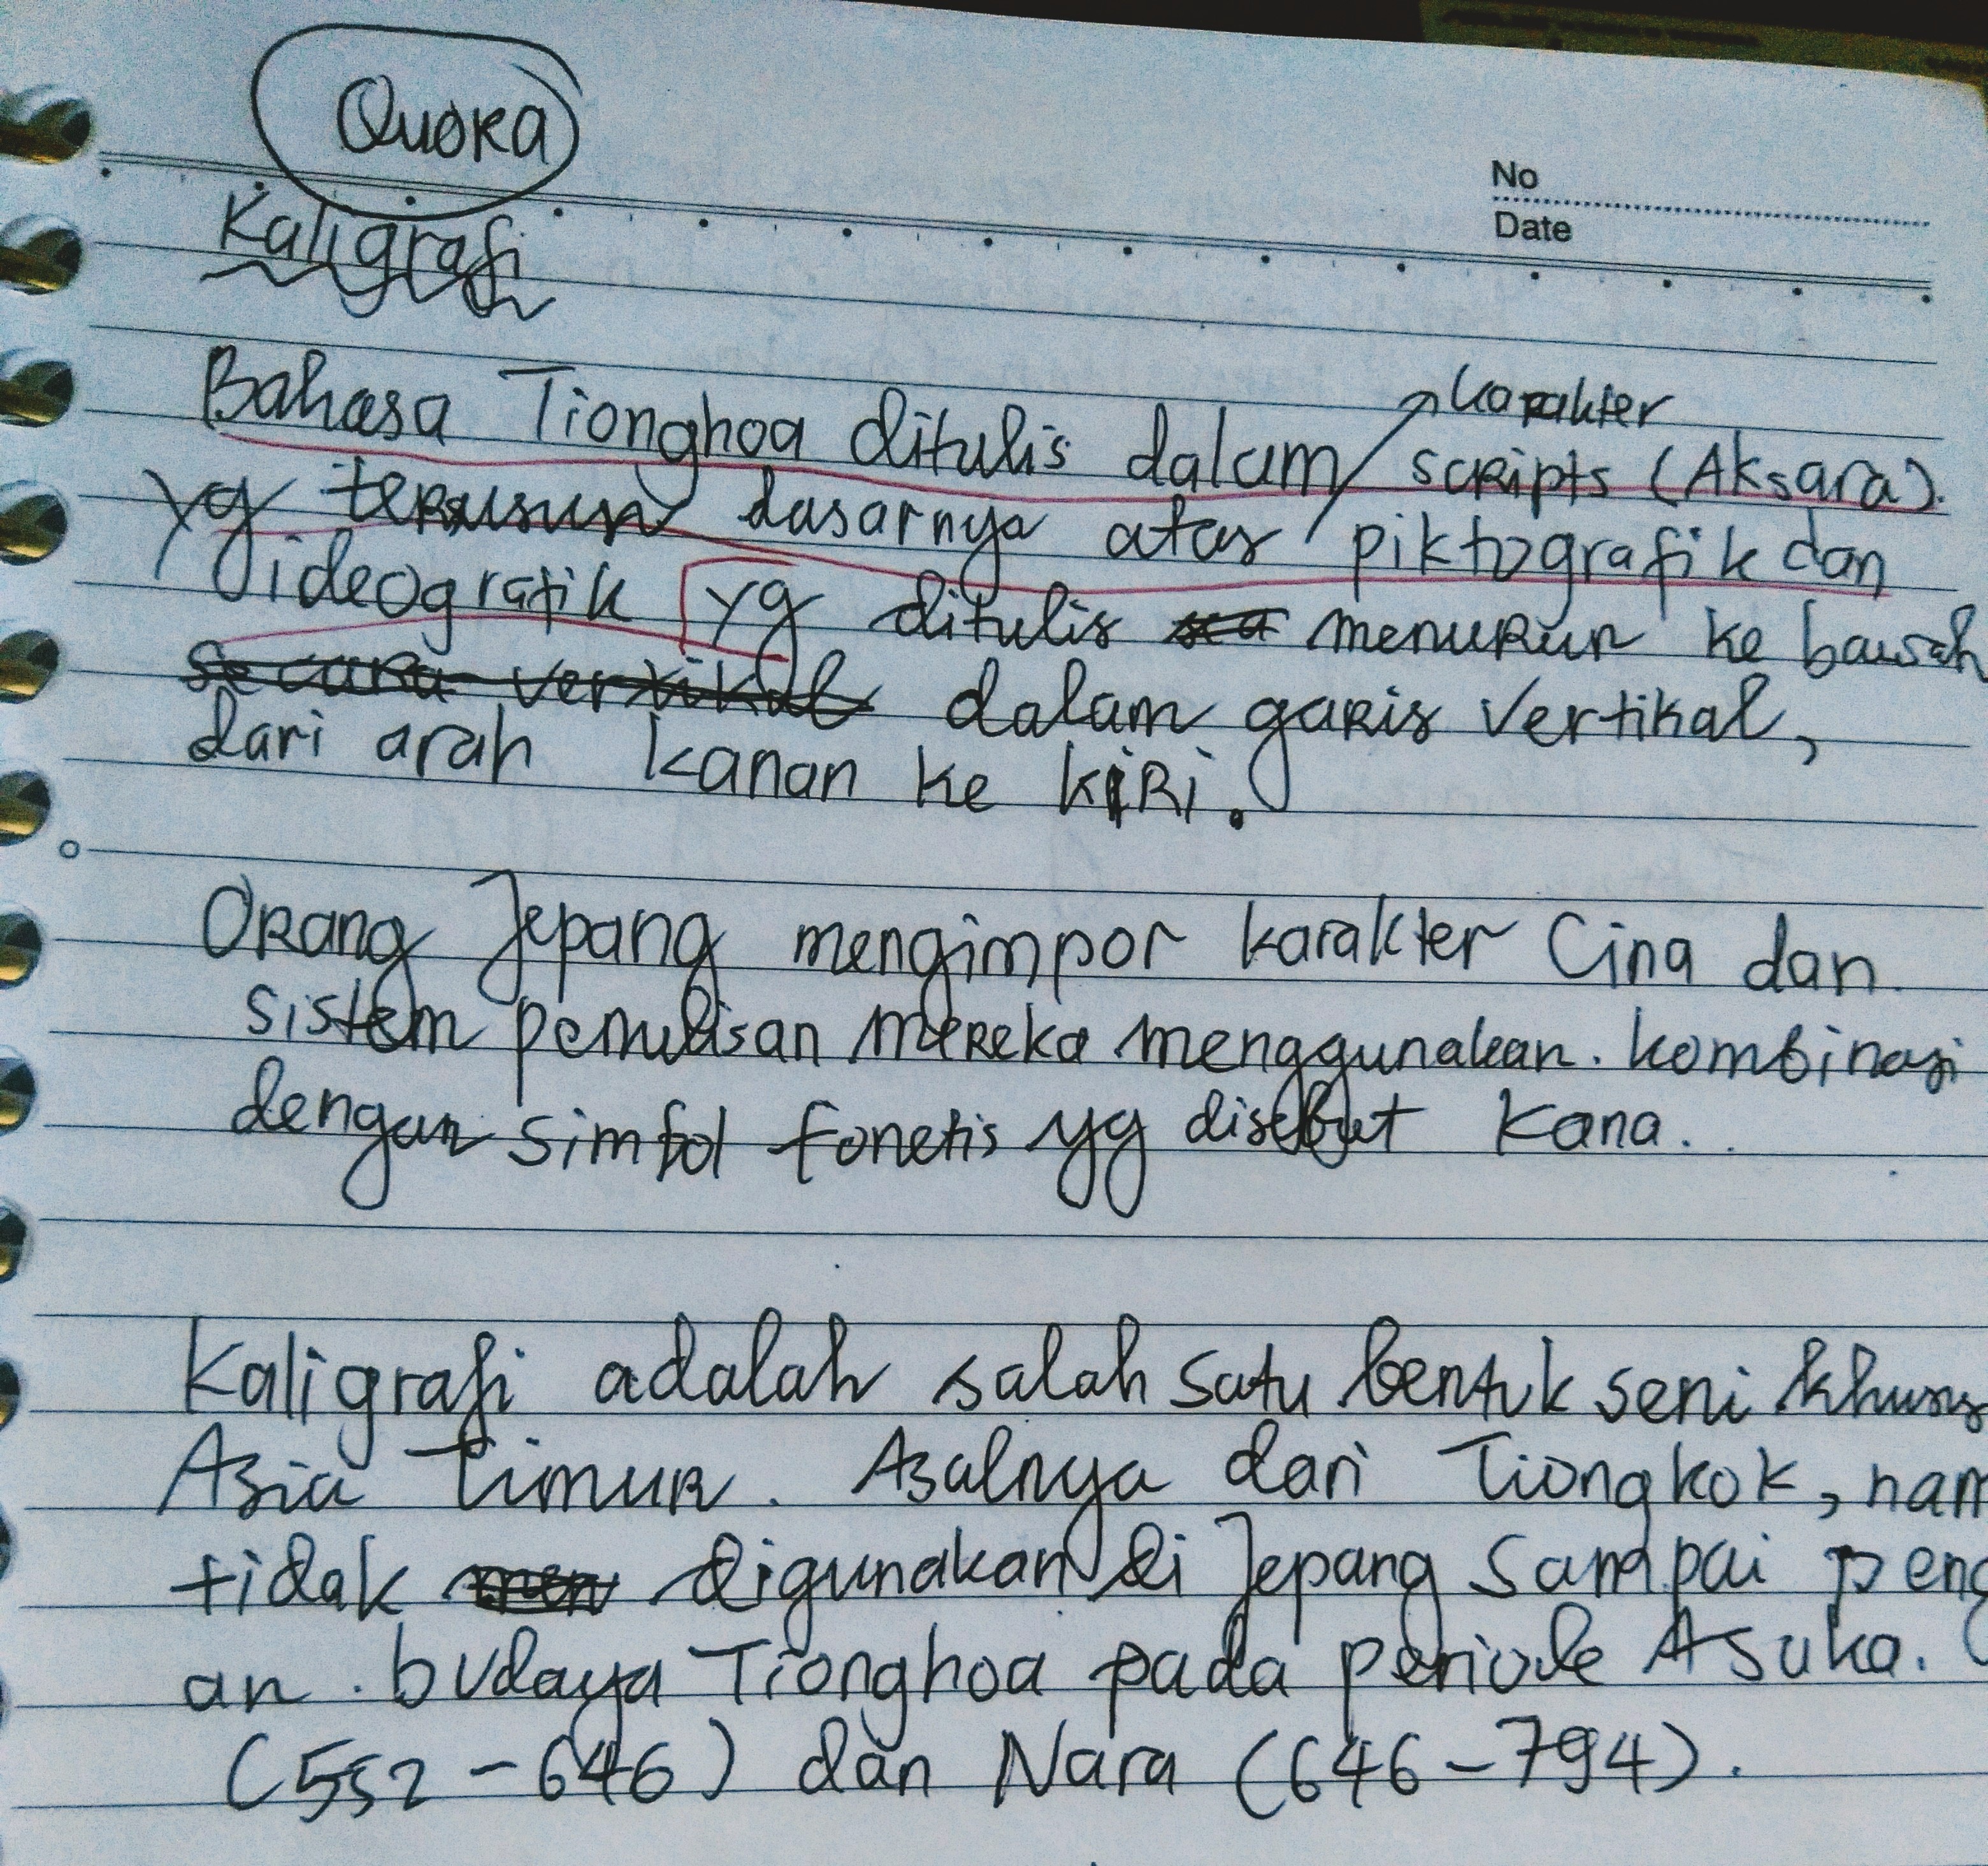 Quoka
No
Date
Kaligrafi
karakter
Bahasa Tionghoa ditulis dalam scripts (Aksara).
yg tersusun dasarnya atas piktografik dan
ideografik yg ditulis menurun ke bawah
secara vertikal dalam garis vertikal,
dari arah kanan ke kiri.
Orang Jepang mengimpor karakter Cina dan
sistem penulisan mereka menggunakan. kombinasi
dengan simbol fonetis yg disebut Kana.
Kaligrafi adalah salah satu bentuk seni khusus
Asia Timur. Asalnya dari Tiongkok, nam
tidak digunakan di Jepang sampai peng
an. budaya Tionghoa pada periode Asuka.
(552-646) dan Nara (646-794).